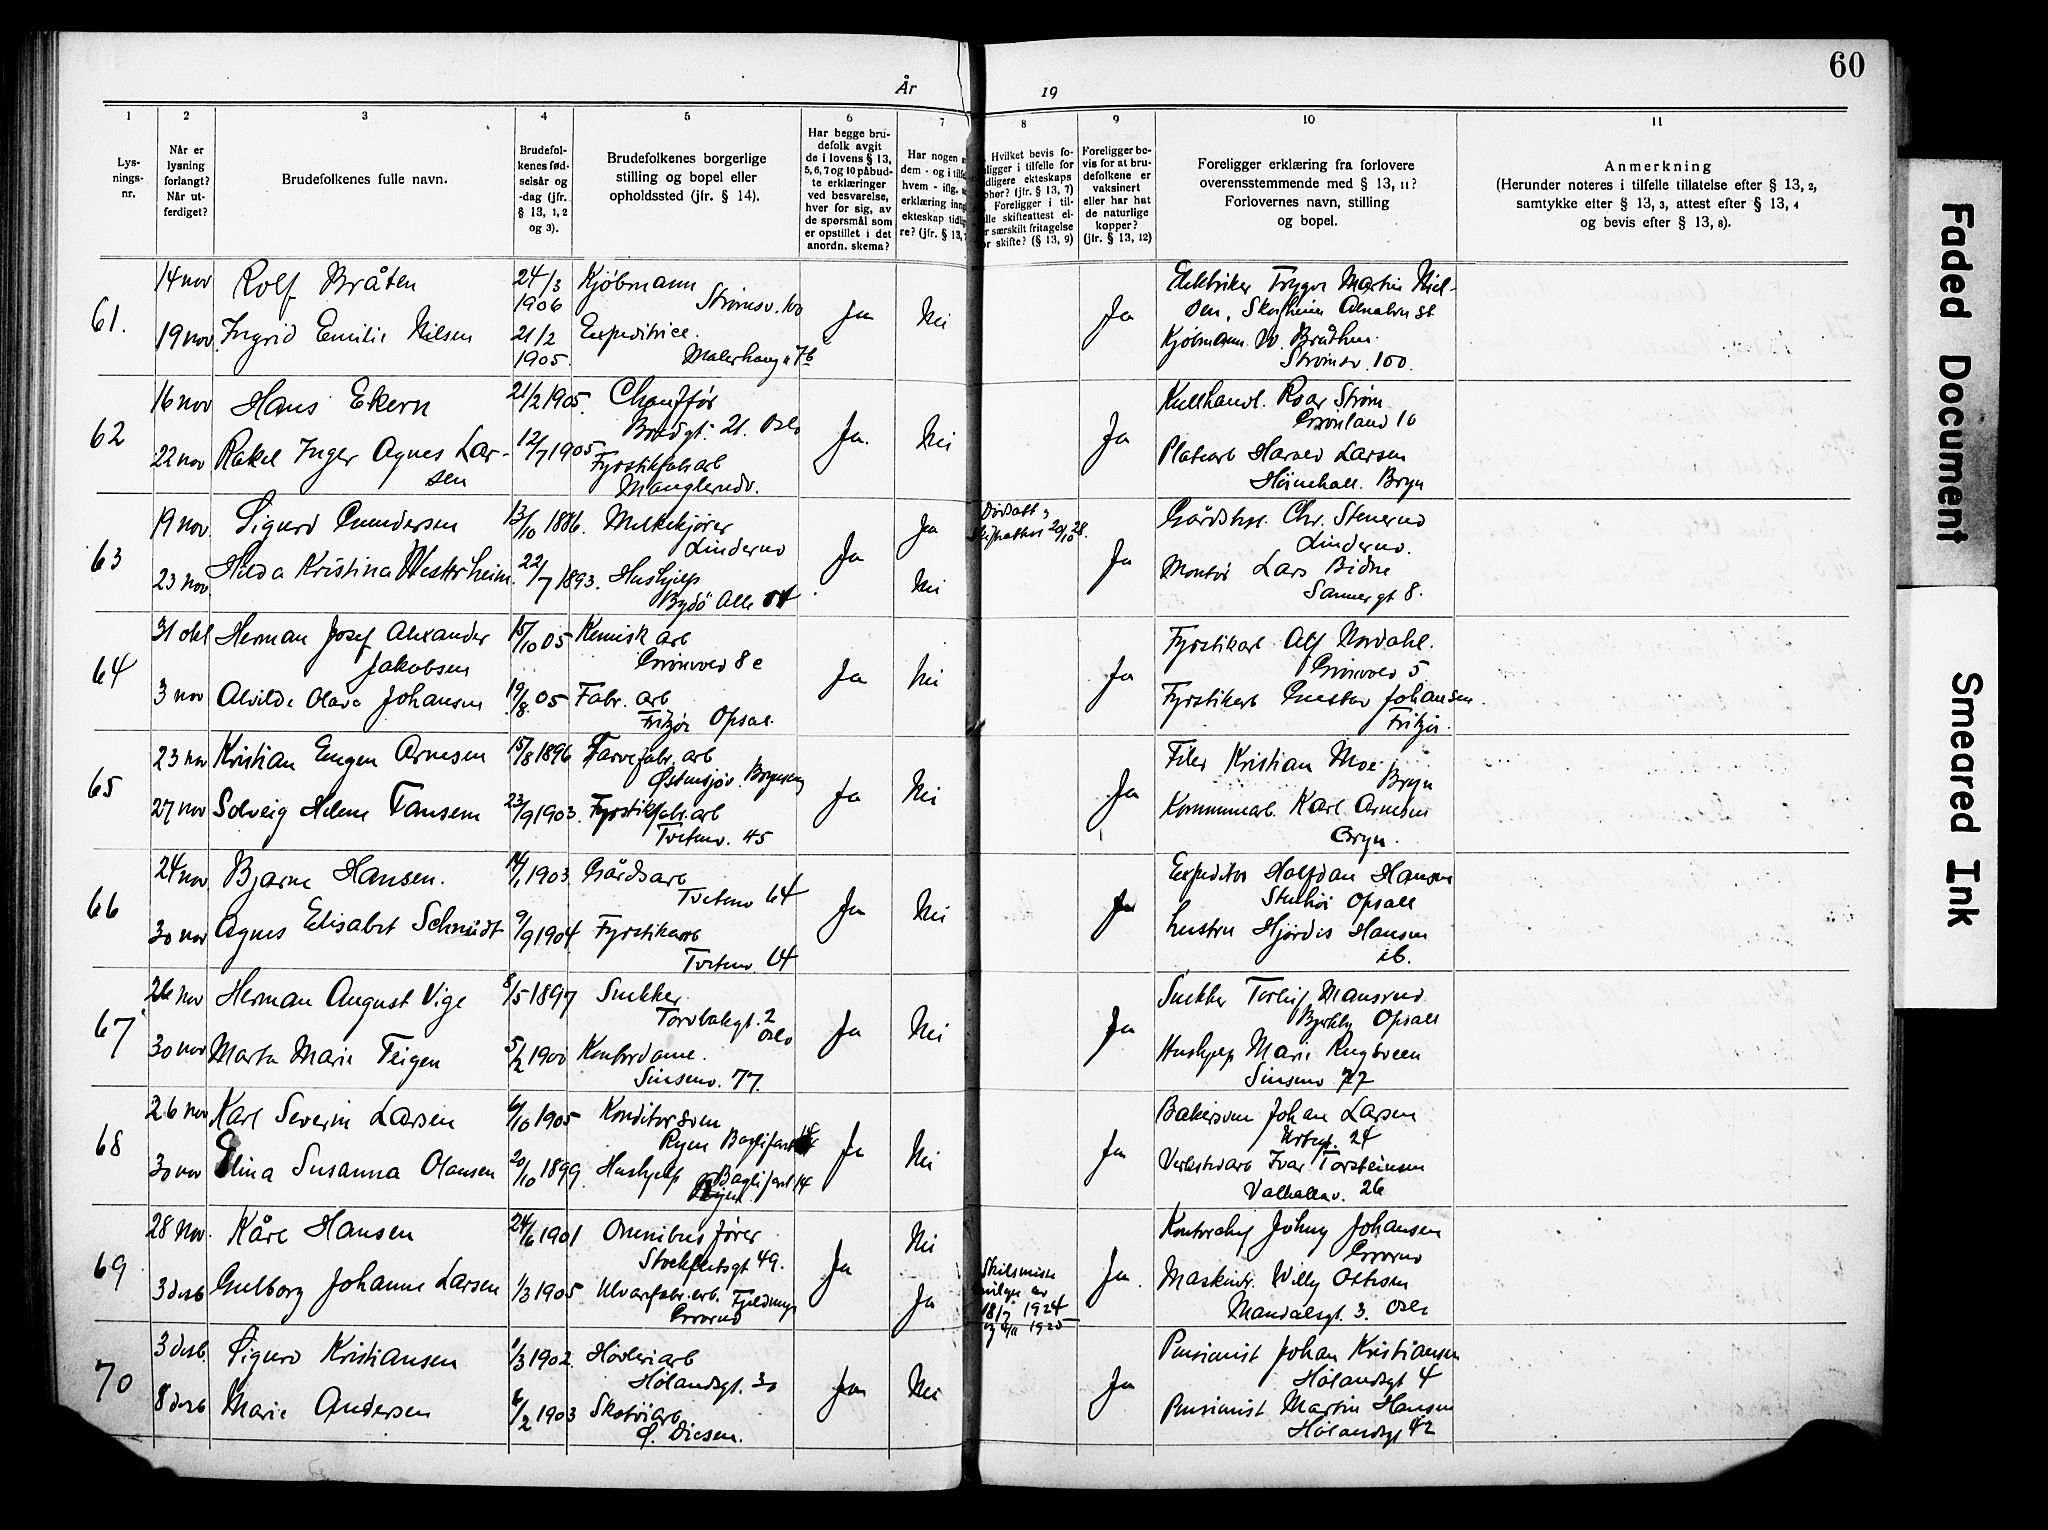 60
År
19
1
2
3
4
5
6
7
8
9
10
11
Lys-
nings-
nr.
Når er
lysning
forlangt?
Når ut-
ferdiget?
Brudefolkenes fulle navn.
Brudefol-
kenes fød-
selsår og
-dag (jfr.
§ 13, 1, 2
og 3).
Brudefolkenes borgerlige
stilling og bopel eller
opholdssted (jfr. § 14).
Har begge bru-
defolk avgit
de i lovens § 13,
5, 6, 7 og 10 påbud-
te erklæringer
ved besvarelse,
hver for sig, av
de spørsmål som
er opstillet i det
anordn. skema?
Har nogen
dem - og i
hvem - iflg.
erklæring
ekteskap
re? (jfr. § 13,
Hvilket bevis fo-
religger i tilfelle for
ekteskaps
(jfr. § 13, 7)
Foreligger i til-
skifteattest el-
særskilt fritagelse
skifte? (§ 13, 9)
Foreligger be-
vis for at bru-
defolkene er
vaksinert
eller har hat
de naturlige
kopper?
(jfr. § 13, 12)
Foreligger erklæring fra forlovere
overensstemmende med § 13, 11?
Forlovernes navn, stilling
og bopel.
Anmerkning
(Herunder noteres i tilfelle tillatelse efter § 13, 2,
samtykke efter § 13, 3, attest efter § 13, 4
og bevis efter § 13, 8).
61.
14 nov
Rolf Bråten
24/3
1906
Kjøbmann
Strømsv. 100
19 nov
Ingrid Emilie Nilsen
21/2
1905
Expeditrice.
Malerhaug 76
Ja
Nei
Ja
Elektriker Trygve Martin Niel-
sen, Skogheim Alnabru st
Kjøbmann W. Bråthen.
Strømsv. 100.
62
16 nov
Hans Ekern
21/2 1905.
Chauffør
Bredgt. 21. Oslo
22 nov
Rakel Inger Agnes Lar-
sen
12/7 1905
Fyrstikfabarb
Manglerudv.
Ja.
Nei
Ja
Kullhandl. Roar Strøm
Grønland 10
Platearb Harald Larsen
Høienhall. Bryn
63
19 nov
Sigurd Gundersen
13/10 1886.
Melkekjører
Linderud
23 nov
Hilda Kristina Westerheim
22/7 1893.
Hushjelp
Bygdö Alle 54
Ja
Ja
Nei
Dødsatt &
skifteattest 20/10 28.
Ja
Gårdsbest. Chr. Stenerud
Linderud.
Montør Lars Bidne
Sannergt 8.
64
31 okt
Herman Josef Alexander
Jakobsen
15/10 05
Kemisk arb
Grønvold 8 c
3 nov
Alvilde Olava Johansen
19/8. 05
Fabr. arb
Fritzøe Opsal.
Ja
Nei
Ja
Fyrstikarb. Alf Nordahl.
Grønvold 5
Fyrstikarb Gustav Johansen
Fritzøe.
65
23 nov
Kristian Eugen Arnesen
15/8 1896
Farvefabr. arb
Østensjøv. Bryn
27 nov
Solveig Helene Fansem
23/9 1903.
Fyrstikfabr. arb
Tvetenv. 45
Ja
Nei
Ja
Filer Kristian Moe
Bryn
Kommunearb. Karl Arnesen
Bryn.
66
24 nov
Bjarne Hansen.
14/1 1903
Gårdsarb
Tvetenv 64
30 nov
Agnes Elisabet Schmidt
9/9 1904
Fyrstikarb
Tvetenv. 64
Ja
Nei
Ja
Expeditør Halfdan Hansen
Opsall
hustru Hjørdis Hansen
ib.
67
26 nov
Herman August Vige
8/5 1897
Snekker
Torvbakgt. 2
Oslo
30 nov
Marta Marie Teigen
5/2 1900
Kontordame.
Sinsenv. 77.
Ja
Nei
Ja
Snekker Torleif Mansrud
Bjerkly Opsall
Hushjelp Marie Rugsveen
Sinsenv 77
68
26 nov
Karl Severin Larsen
6/10 1905
Konditorsven
Ryen Baglerfaret 14
30 nov
Elina Susanna Olausen
20/10 1899.
Hushjelp Baglerfaret 14
Ryen
Ja
Nei
Ja
Bakersven Johan Larsen
Urtegt. 24
Verkstedarb Ivar Torsteinsen
Valhallav. 26
69
28 Nov.
Kåre Hansen
24/6 1901
Omnibusfører
Stockfletsgt 49.
3 desb
Gulborg Johanne Larsen
1/3 1905
Ulvarefabr. arb.
Grorud
Ja
Nei
Ja
Skilsmisse
bevilgn av
18/7 1924
og 4/11 1925
Ja.
Kontorchef Johny Johansen
Grorud
Maskintr. Willy Ottesen
Mandalsgt. 3. Oslo
70
3 desb.
Sigurd Kristiansen
1/3 1902.
Høvleriarb
Hølandsgt. 30
8 desb
Marie Andersen
6/2 1903
Skotøiarb
Ø. Disen.
Ja
Nei
Ja
Pensionist Johan Kristiansen
Hølandsgt 4
Pensionist Martin Hansen
Hølandsgt 42
Faded Document
Smeared Ink